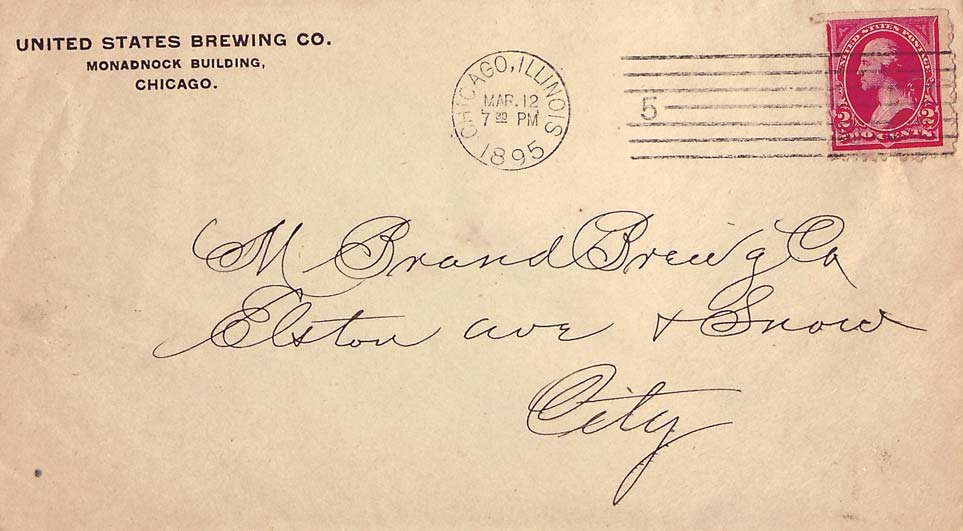 UNITED STATES BREWING CO.
MONADNOCK BUILDING,
CHICAGO.
CHICAGO, ILLINOIS
MAR. 12
7 30 PM
1895
5
UNITED STATES POSTAGE
2 2
TWO CENTS
M Brand Brew'g Co
Elston ave & Snow
City